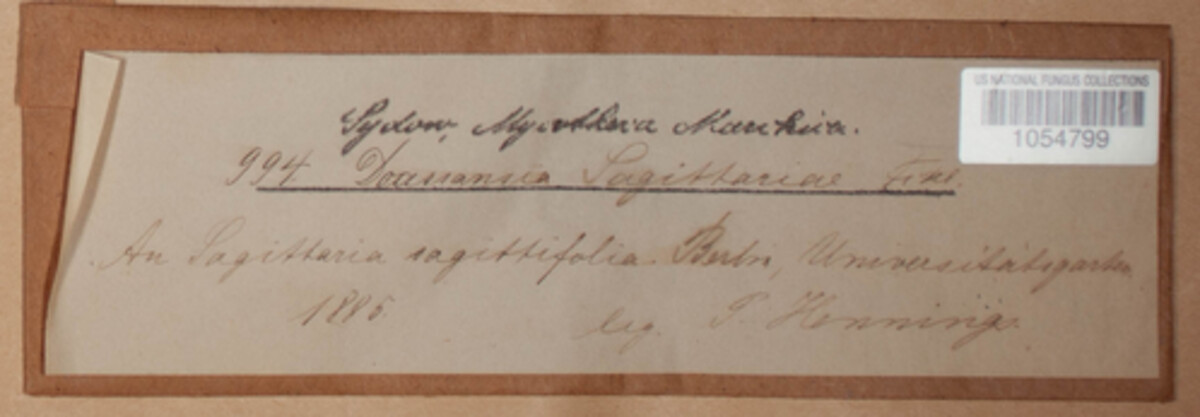 US NATIONAL FUNGUS COLLECTIONS
1054799
Sydow, Mycotheca Marchica.
994 Doassansia Sagittariae
An Sagittaria sagittifolia Berlin, Universitätsgarten
1885. leg. P. Hennings.